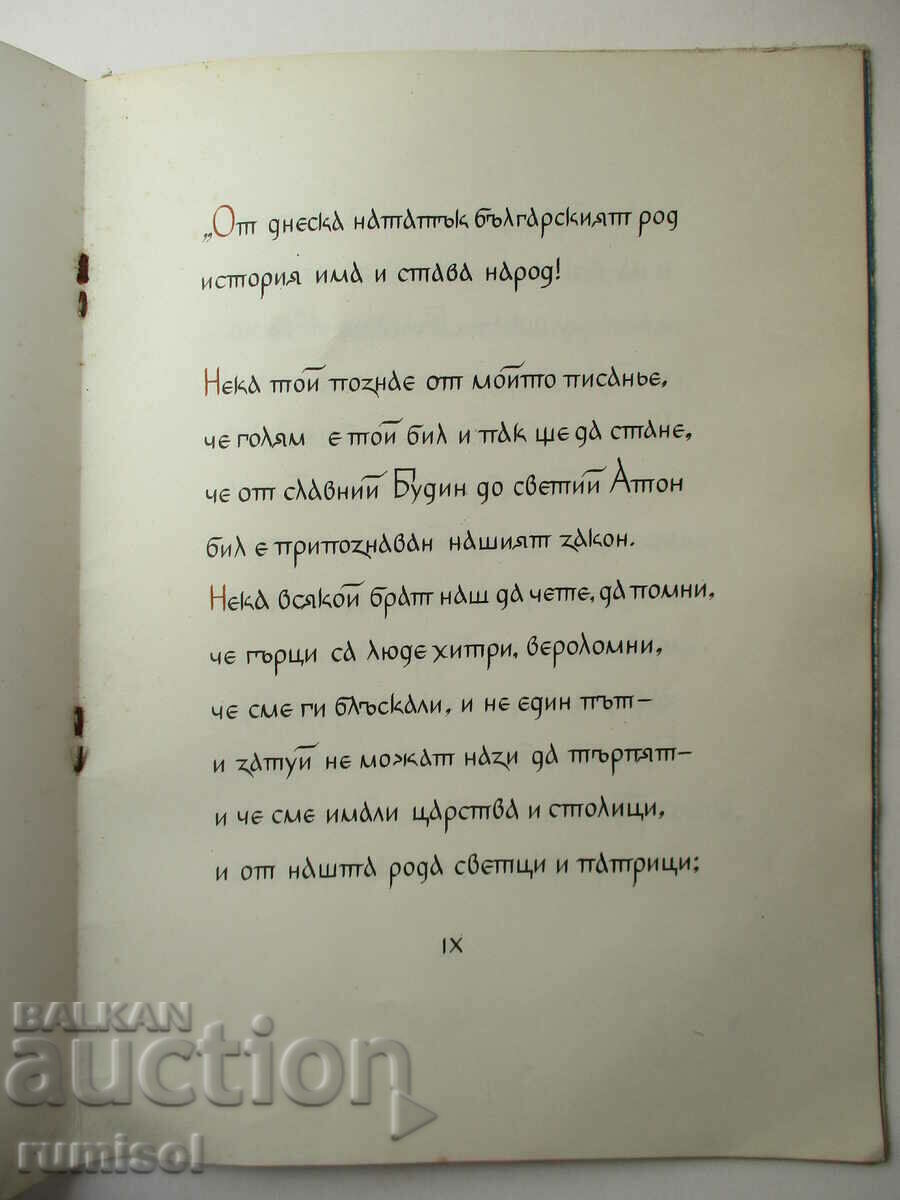 „От днеска нататък българският род
история има и става народ!
Нека той познае от мойто писанье,
че голям е той бил и пак ще да стане,
че от славний Будин до светий Атон
бил е припознаван нашият закон.
Нека всякой брат наш да чете, да помни,
че гърци са люде хитри, вероломни,
че сме ги блъскали, и не един път—
и затуй не можат нази да търпят—
и че сме имали царства и столици,
и от нашта рода светци и патрици;
IX
BALKAN
auction
rumisol